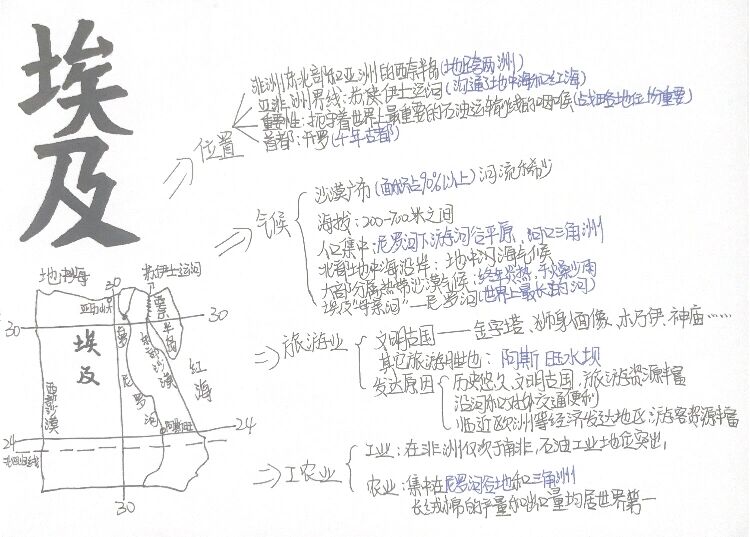 埃及
位置
非洲东北部和亚洲的西奈半岛(地跨两洲)
亚非洲界线:苏伊士运河(沟通了地中海和红海)
重要性:扼守着世界上最重要的石油运输航线的咽喉(战略地位份重要)
首都:开罗(千年古都)
气候
沙漠广布(面积占90%以上)河流稀少
海拔:200-700米之间
人口集中:尼罗河下游河谷平原、河口三角洲
北部地中海沿岸:地中海气候
大部分属热带沙漠气候:终年炎热、干燥少雨
埃及"母亲河"—尼罗河(世界上最长的河)
旅游业
文明古国——金字塔、狮身人面像、木乃伊、神庙……
其它旅游胜地:阿斯旺水坝
发达原因
历史悠久、文明古国,旅游资源丰富
沿河和对外交通便利
临近欧洲等经济发达地区,游客资源丰富
工农业
工业:在非洲仅次于南非,石油工业地位突出,
农业:集中在尼罗河谷地和三角洲
长绒棉的产量和出口量均居世界第一
地中海
30
苏伊士运河
亚历山大
30
30
开罗
西奈半岛
埃及
西部沙漠
东部沙漠
尼罗河
红海
阿斯旺
24
24
北回归线
30